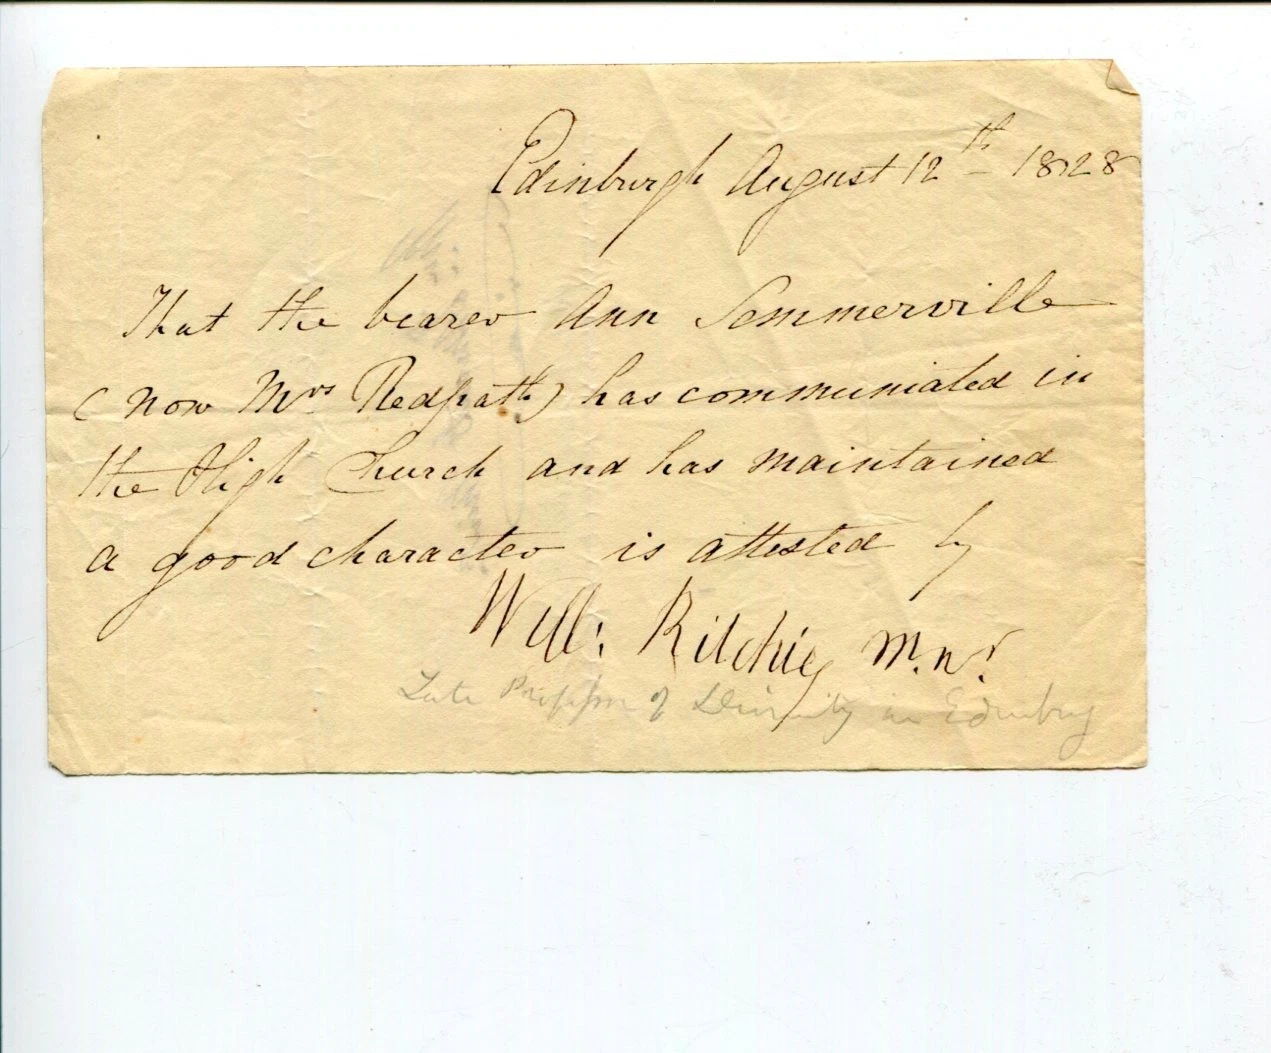 Edinburgh August 12th 1828
That the bearer Ann Sommerville
(now Mrs Redpath) has communicated in
the High Church and has maintained
a good character is attested by
Will: Ritchie Mnr
Late Professor of Divinity in Edinburg